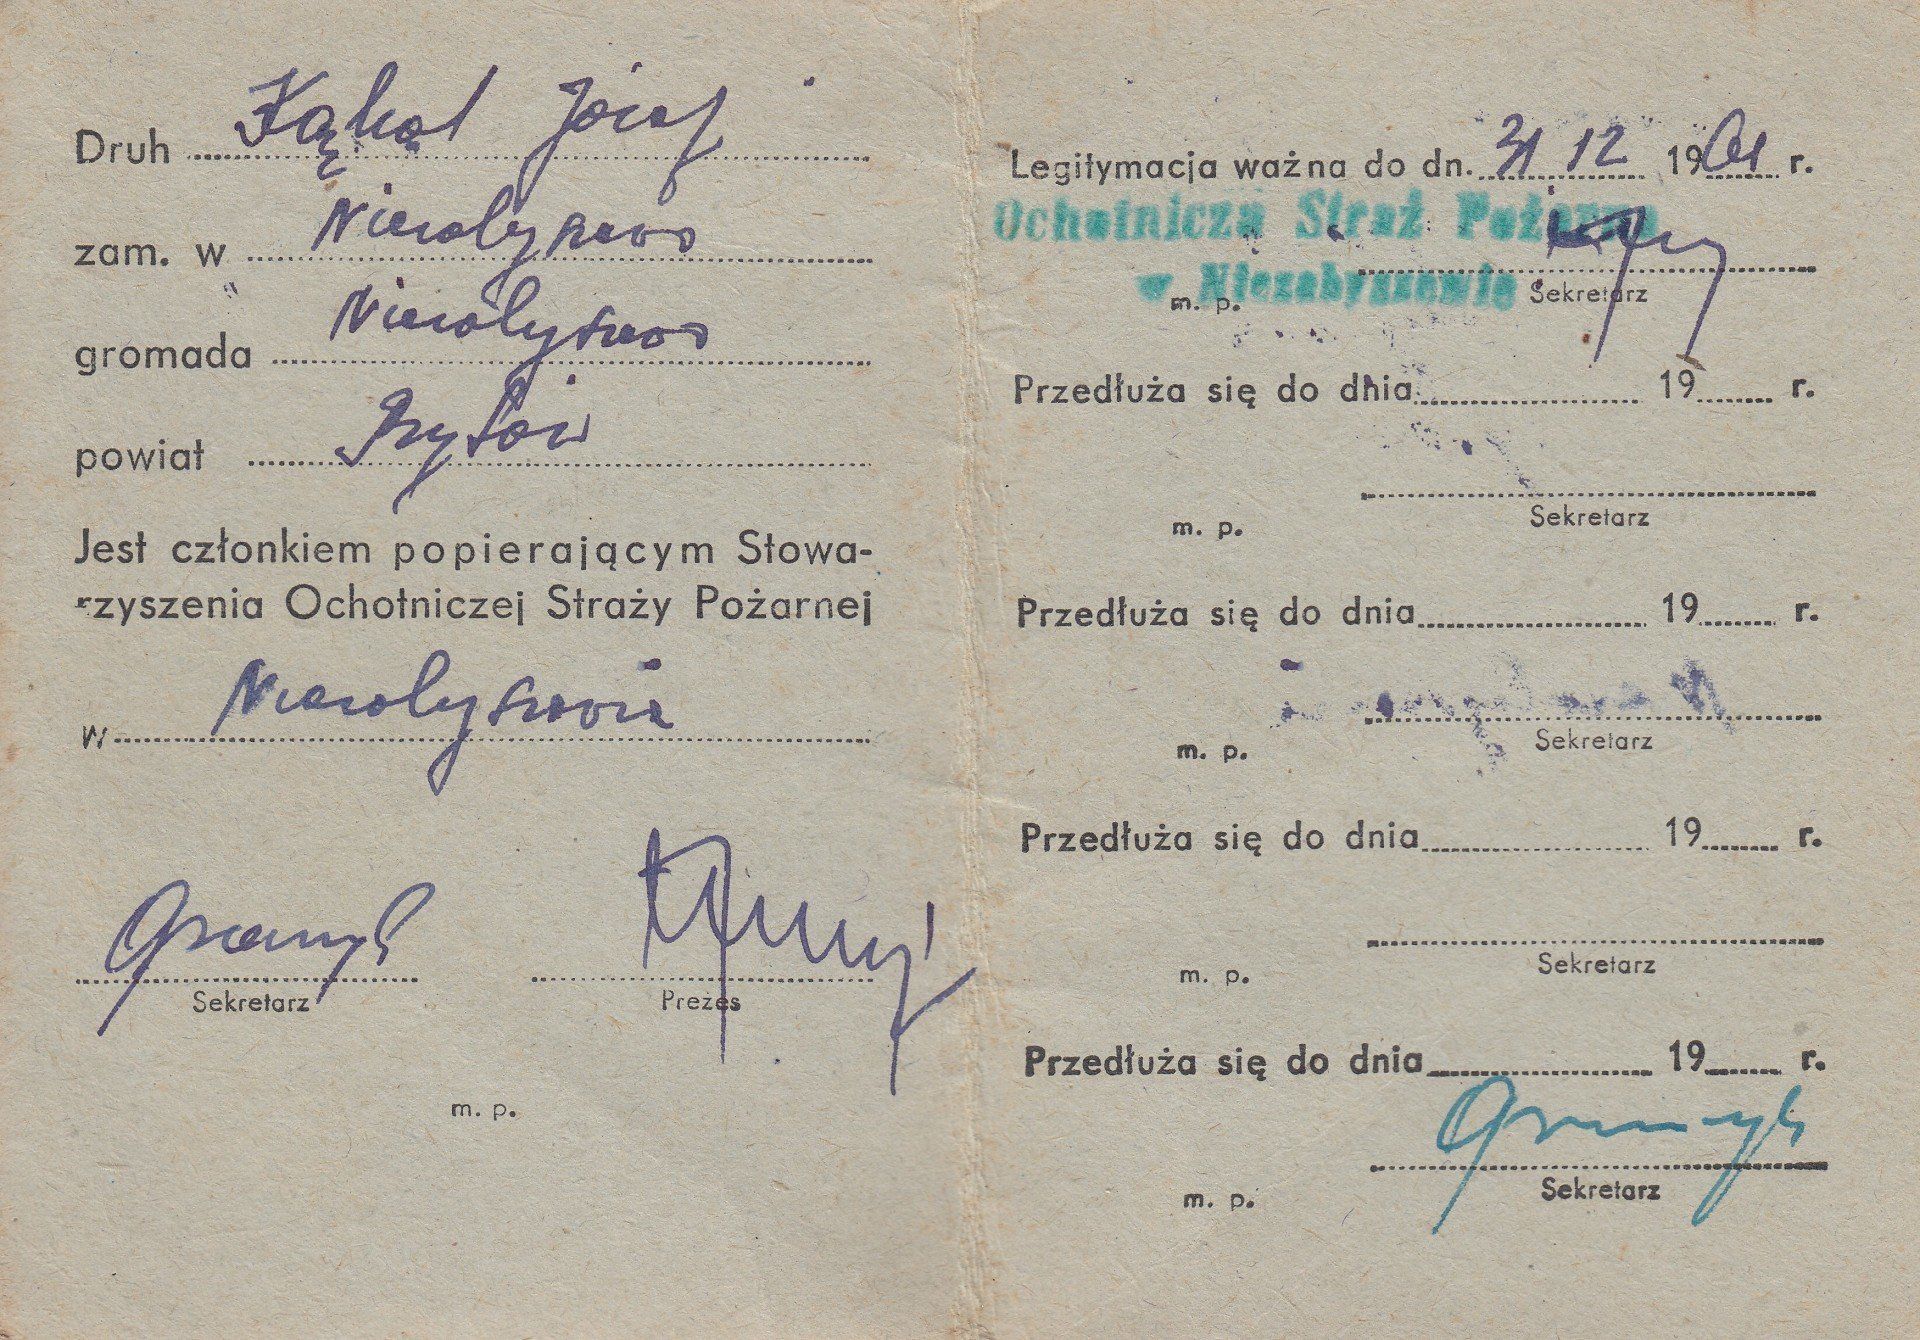 Druh Kąkol Józef
zam. w Niezabyszewo
gromada Niezabyszewo
powiat Bytów
Jest członkiem popierającym Stowa-
rzyszenia Ochotniczej Straży Pożarnej
w Niezabyszewie
Sekretarz Prezes
m. p.
Legitymacja ważna do dn. 31 12 1961 r.
Ochotnicza Straż Pożarna
w Niezabyszewie
m. p. Sekretarz
Przedłuża się do dnia 19 r.
m. p. Sekretarz
Przedłuża się do dnia 19 r.
m. p. Sekretarz
Przedłuża się do dnia 19 r.
m. p. Sekretarz
Przedłuża się do dnia 19 r.
m. p. Sekretarz